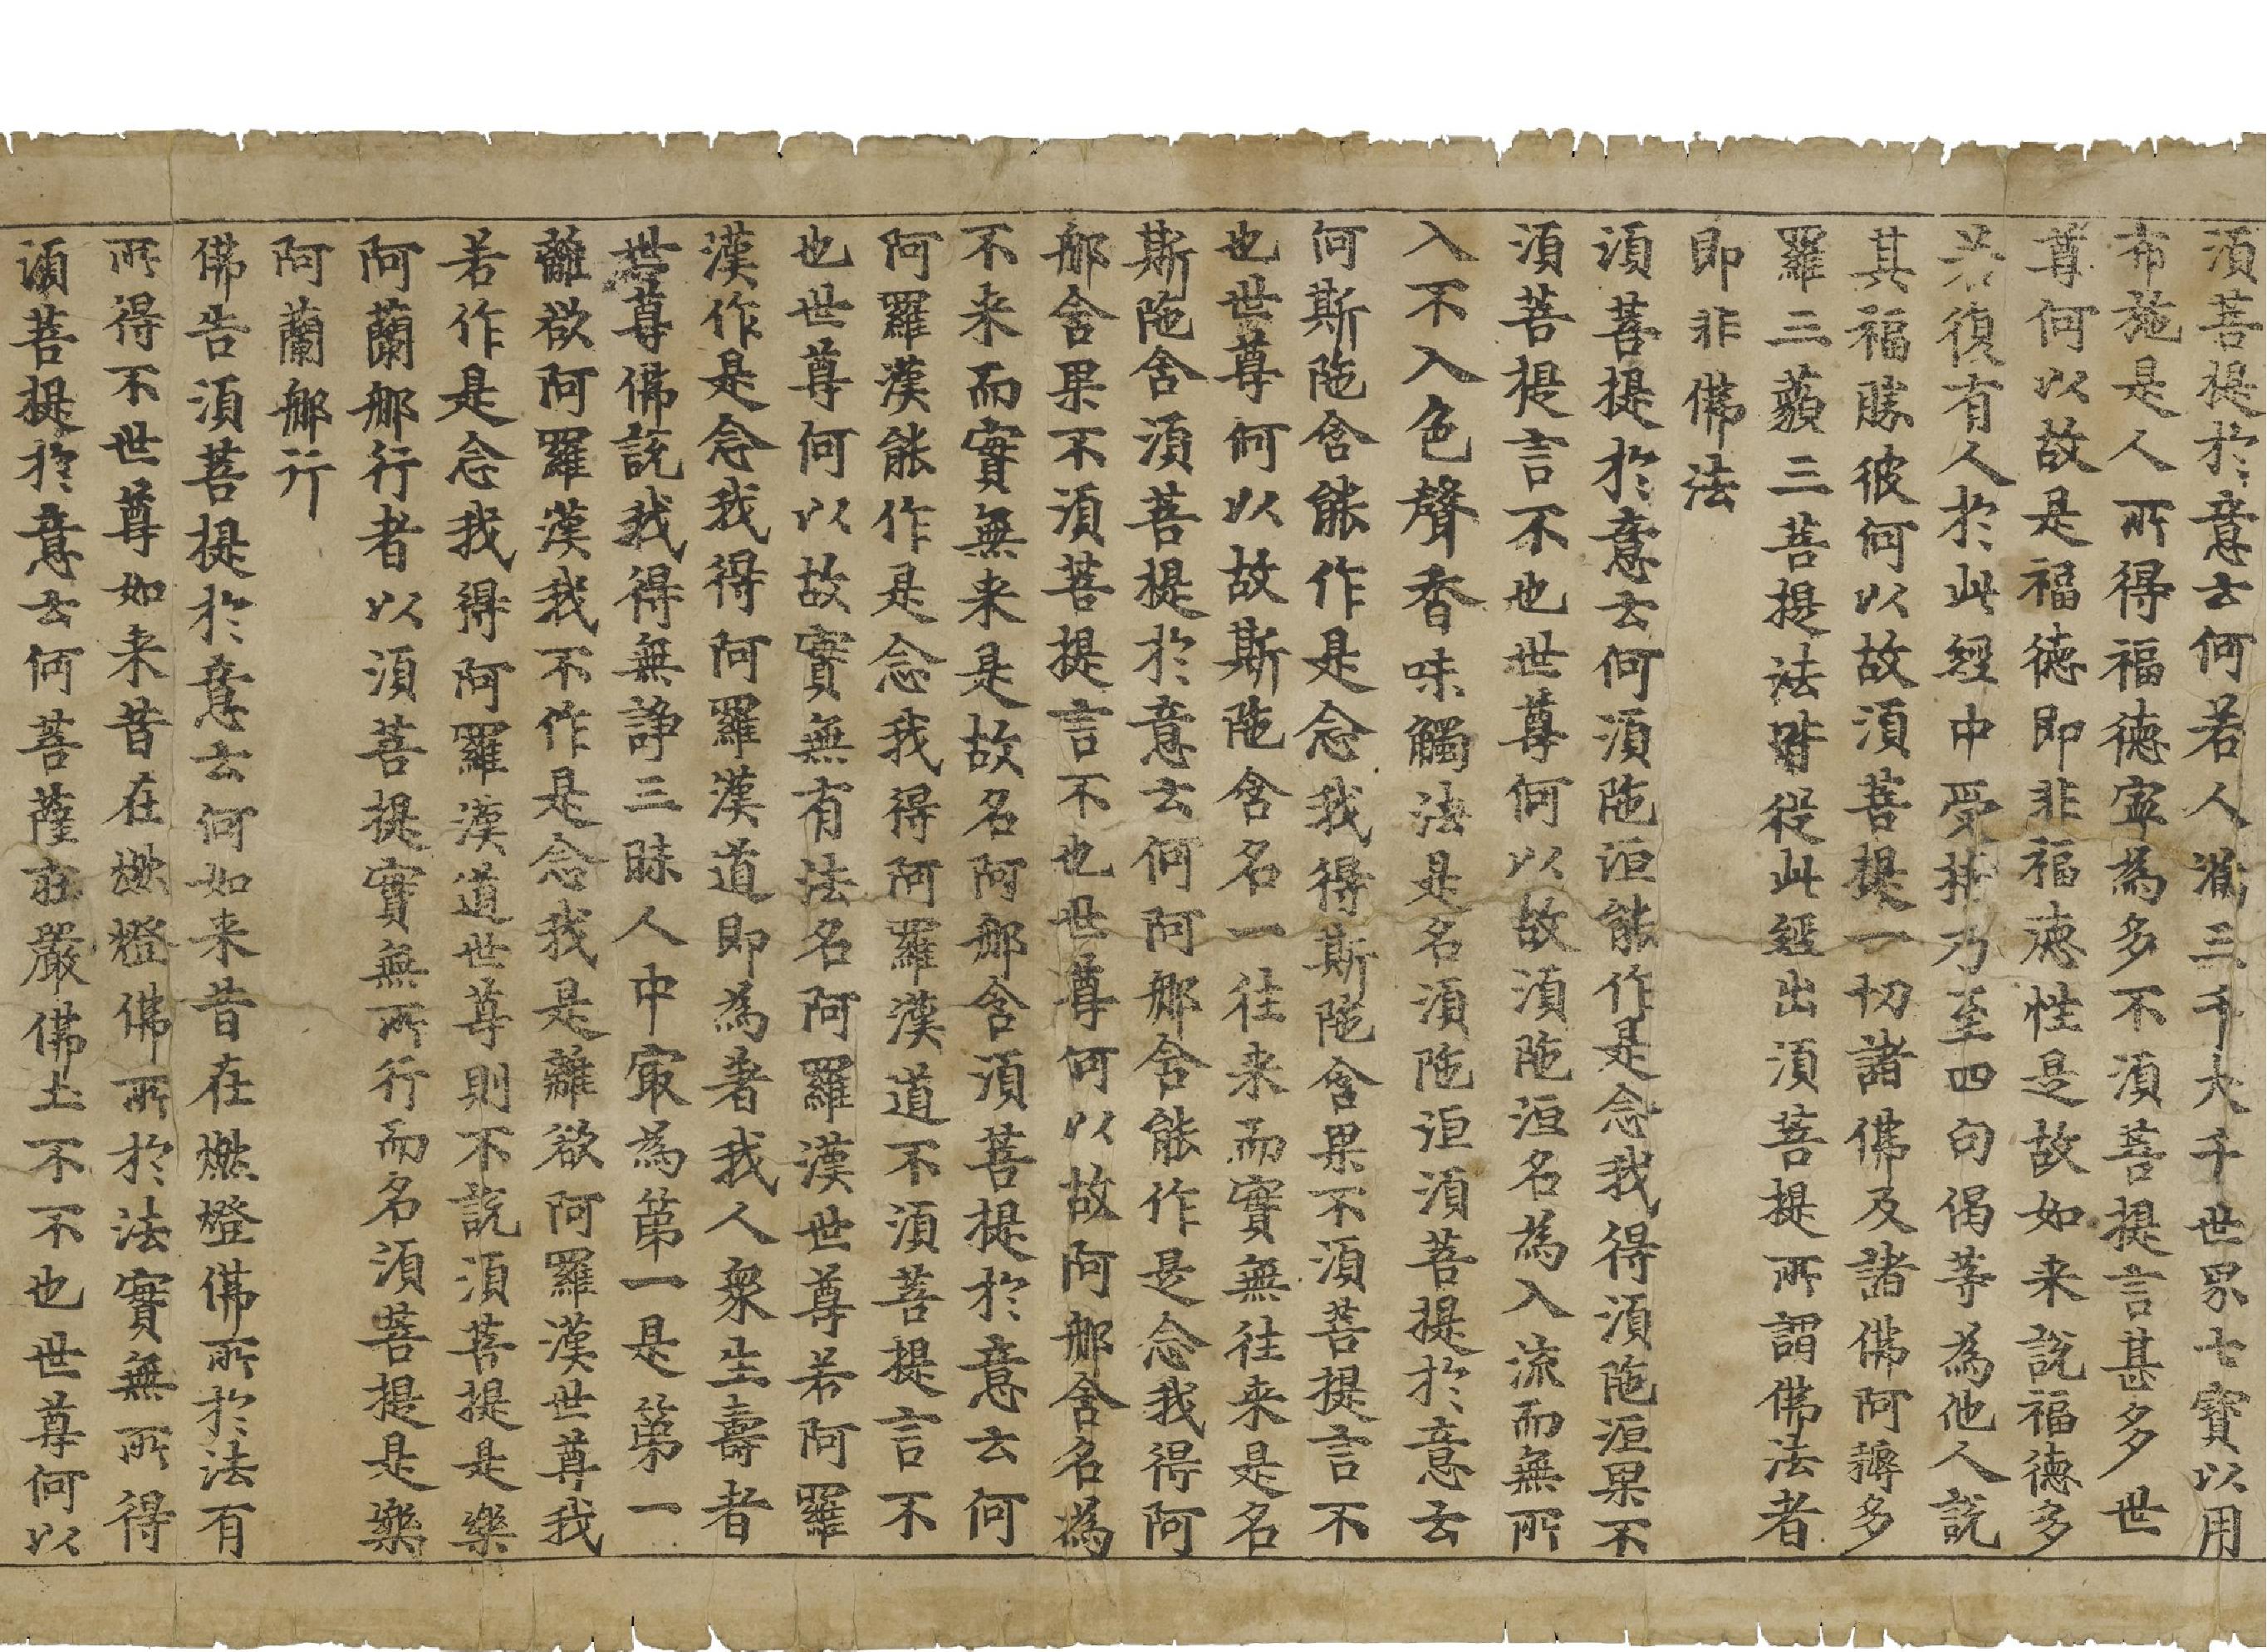 須菩提於意云何若人滿三千大千世界七寶以用
布施是人所得福德寧為多不須菩提言甚多世
尊何以故是福德即非福德性是故如来說福德多
若復有人於此經中受持乃至四句偈等為他人說
其福勝彼何以故須菩提一切諸佛及諸佛阿耨多
羅三藐三菩提法皆從此經出須菩提所謂佛法者
即非佛法
須菩提於意云何須陁洹能作是念我得須陁洹果不
須菩提言不也世尊何以故須陁洹名為入流而無所
入不入色聲香味觸法是名須陁洹須菩提於意云
何斯陁含能作是念我得斯陁含果不須菩提言不
也世尊何以故斯陁含名一往来而實無往来是名
斯陁含須菩提於意云何阿那含能作是念我得阿
那含果不須菩提言不也世尊何以故阿那含名為
不来而實無来是故名阿那含須菩提於意云何
阿羅漢能作是念我得阿羅漢道不須菩提言不
也世尊何以故實無有法名阿羅漢世尊若阿羅
漢作是念我得阿羅漢道即為著我人眾生壽者
世尊佛說我得無諍三昧人中㝡為第一是第一
離欲阿羅漢我不作是念我是離欲阿羅漢世尊我
若作是念我得阿羅漢道世尊則不說須菩提是樂
阿蘭那行者以須菩提實無所行而名須菩提是樂
阿蘭那行
佛告須菩提於意云何如来昔在燃燈佛所於法有
所得不世尊如来昔在燃燈佛所於法實無所得
須菩提於意云何菩薩莊嚴佛土不不也世尊何以